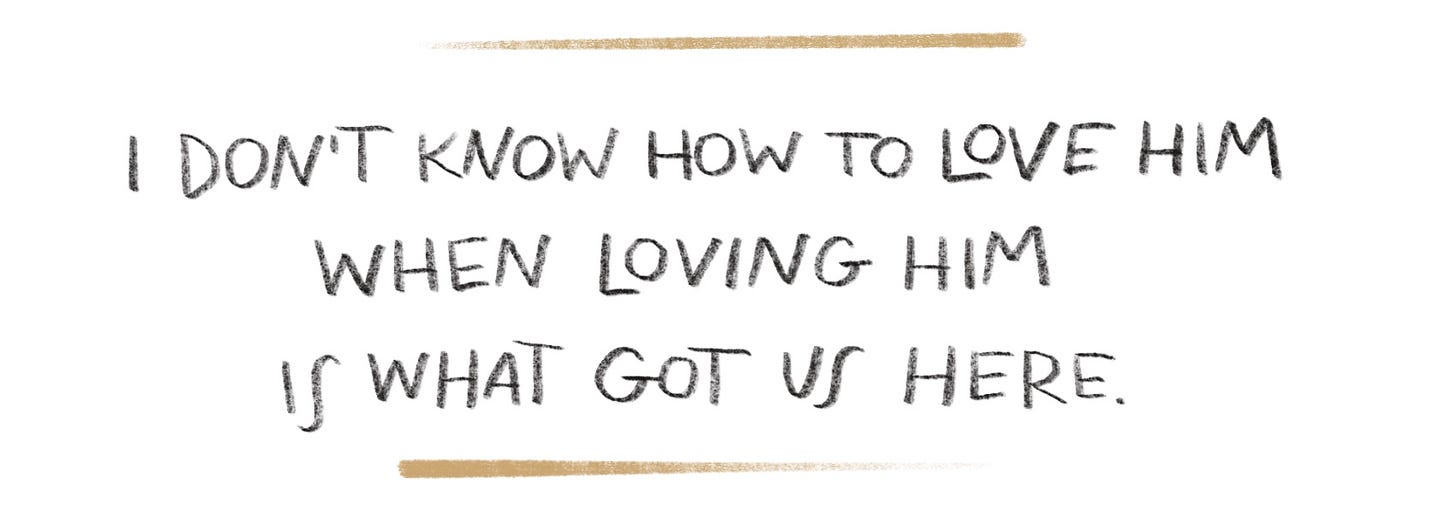 I DON'T KNOW HOW TO LOVE HIM
WHEN LOVING HIM
IS WHAT GOT US HERE.